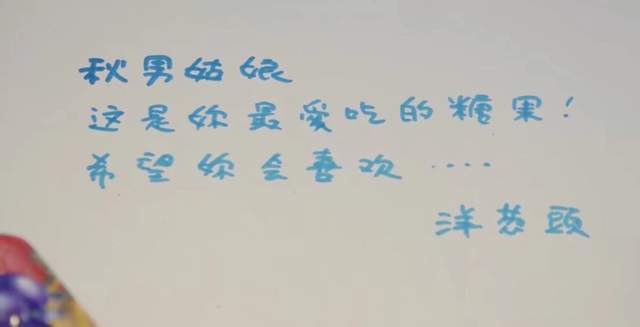 秋男姑娘
这是妳最愛吃的糖果!
希望妳会喜欢····
洋葱頭